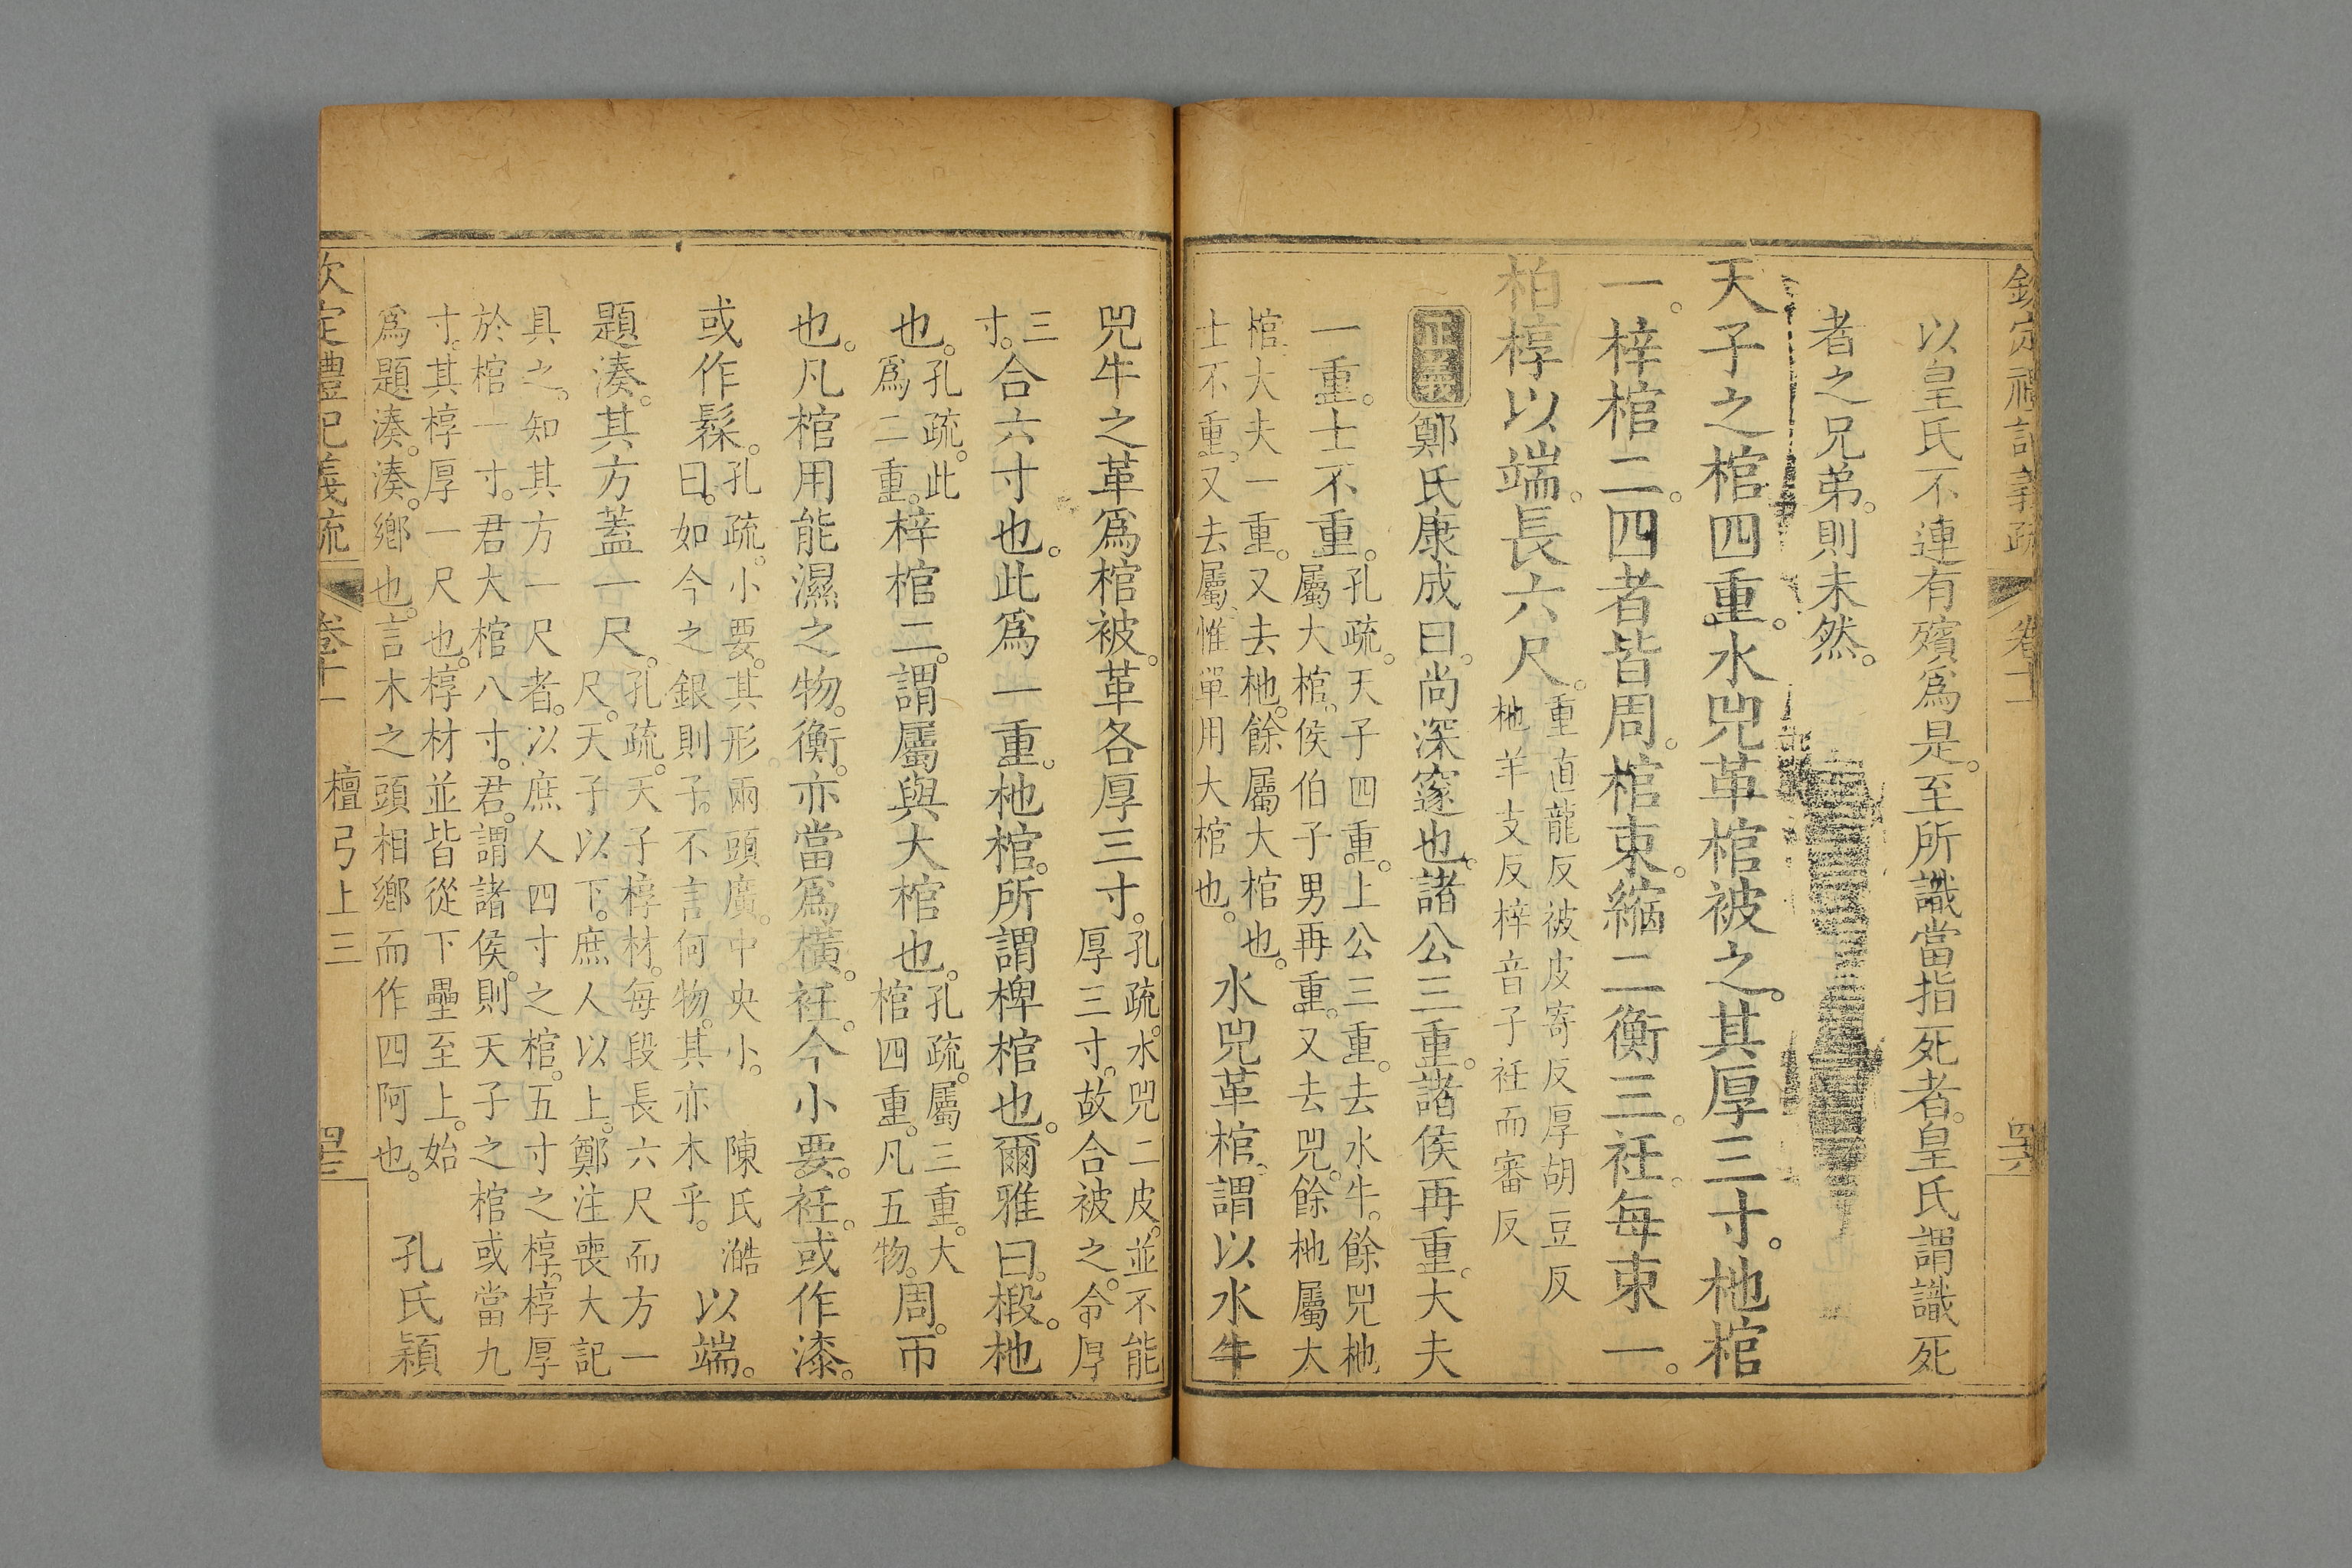 欽定禮記義疏 卷十一
以皇氏不連有殯爲是。至所識當指死者。皇氏謂識死
者之兄弟。則未然。
天子之棺四重。水兕革棺被之。其厚三寸。杝棺
一。梓棺二。四者皆周。棺束。縮二衡三。衽。每束一。
柏椁以端。長六尺。
重直龍反被皮寄反厚胡豆反
杝羊支反梓音子衽而審反
正義鄭氏康成曰。尚深邃也。諸公三重。諸侯再重。大夫
一重。士不重。
孔疏。天子四重。上公三重。去水牛。餘兕杝
屬大棺。侯伯子男再重。又去兕。餘杝屬大
棺。大夫一重。又去杝。餘屬大棺也。
士不重。又去屬。惟單用大棺也。
水兕革棺。謂以水牛
兕牛之革爲棺被。革各厚三寸。
孔疏。水兕二皮。並不能
厚三寸。故合被之。令厚
三
寸。
合六寸也。此爲一重。杝棺。所謂椑棺也。爾雅曰。椵。杝
也。
孔疏。此
爲二重。
梓棺二。謂屬與大棺也。
孔疏。屬三重。大
棺四重。凡五物。
周。帀
也。凡棺用能濕之物。衡。亦當爲橫。衽。今小要。衽。或作漆。
或作髹。
孔疏。小要。其形兩頭廣。中央小。 陳氏澔
曰。如今之銀則子。不言何物。其亦木乎。
以端。
題湊。其方蓋一尺。
孔疏。天子椁材。每段長六尺而方一
尺。天子以下。庶人以上。鄭注喪大記
具之。知其方一尺者。以庶人四寸之棺。五寸之椁。椁厚
於棺一寸。君大棺八寸。君。謂諸侯。則天子之棺或當九
寸。其椁厚一尺也。椁材並皆從下壘至上。始
爲題湊。湊。鄉也。言木之頭相鄉而作四阿也。
孔氏穎
欽定禮記義疏 卷十一 檀弓上三